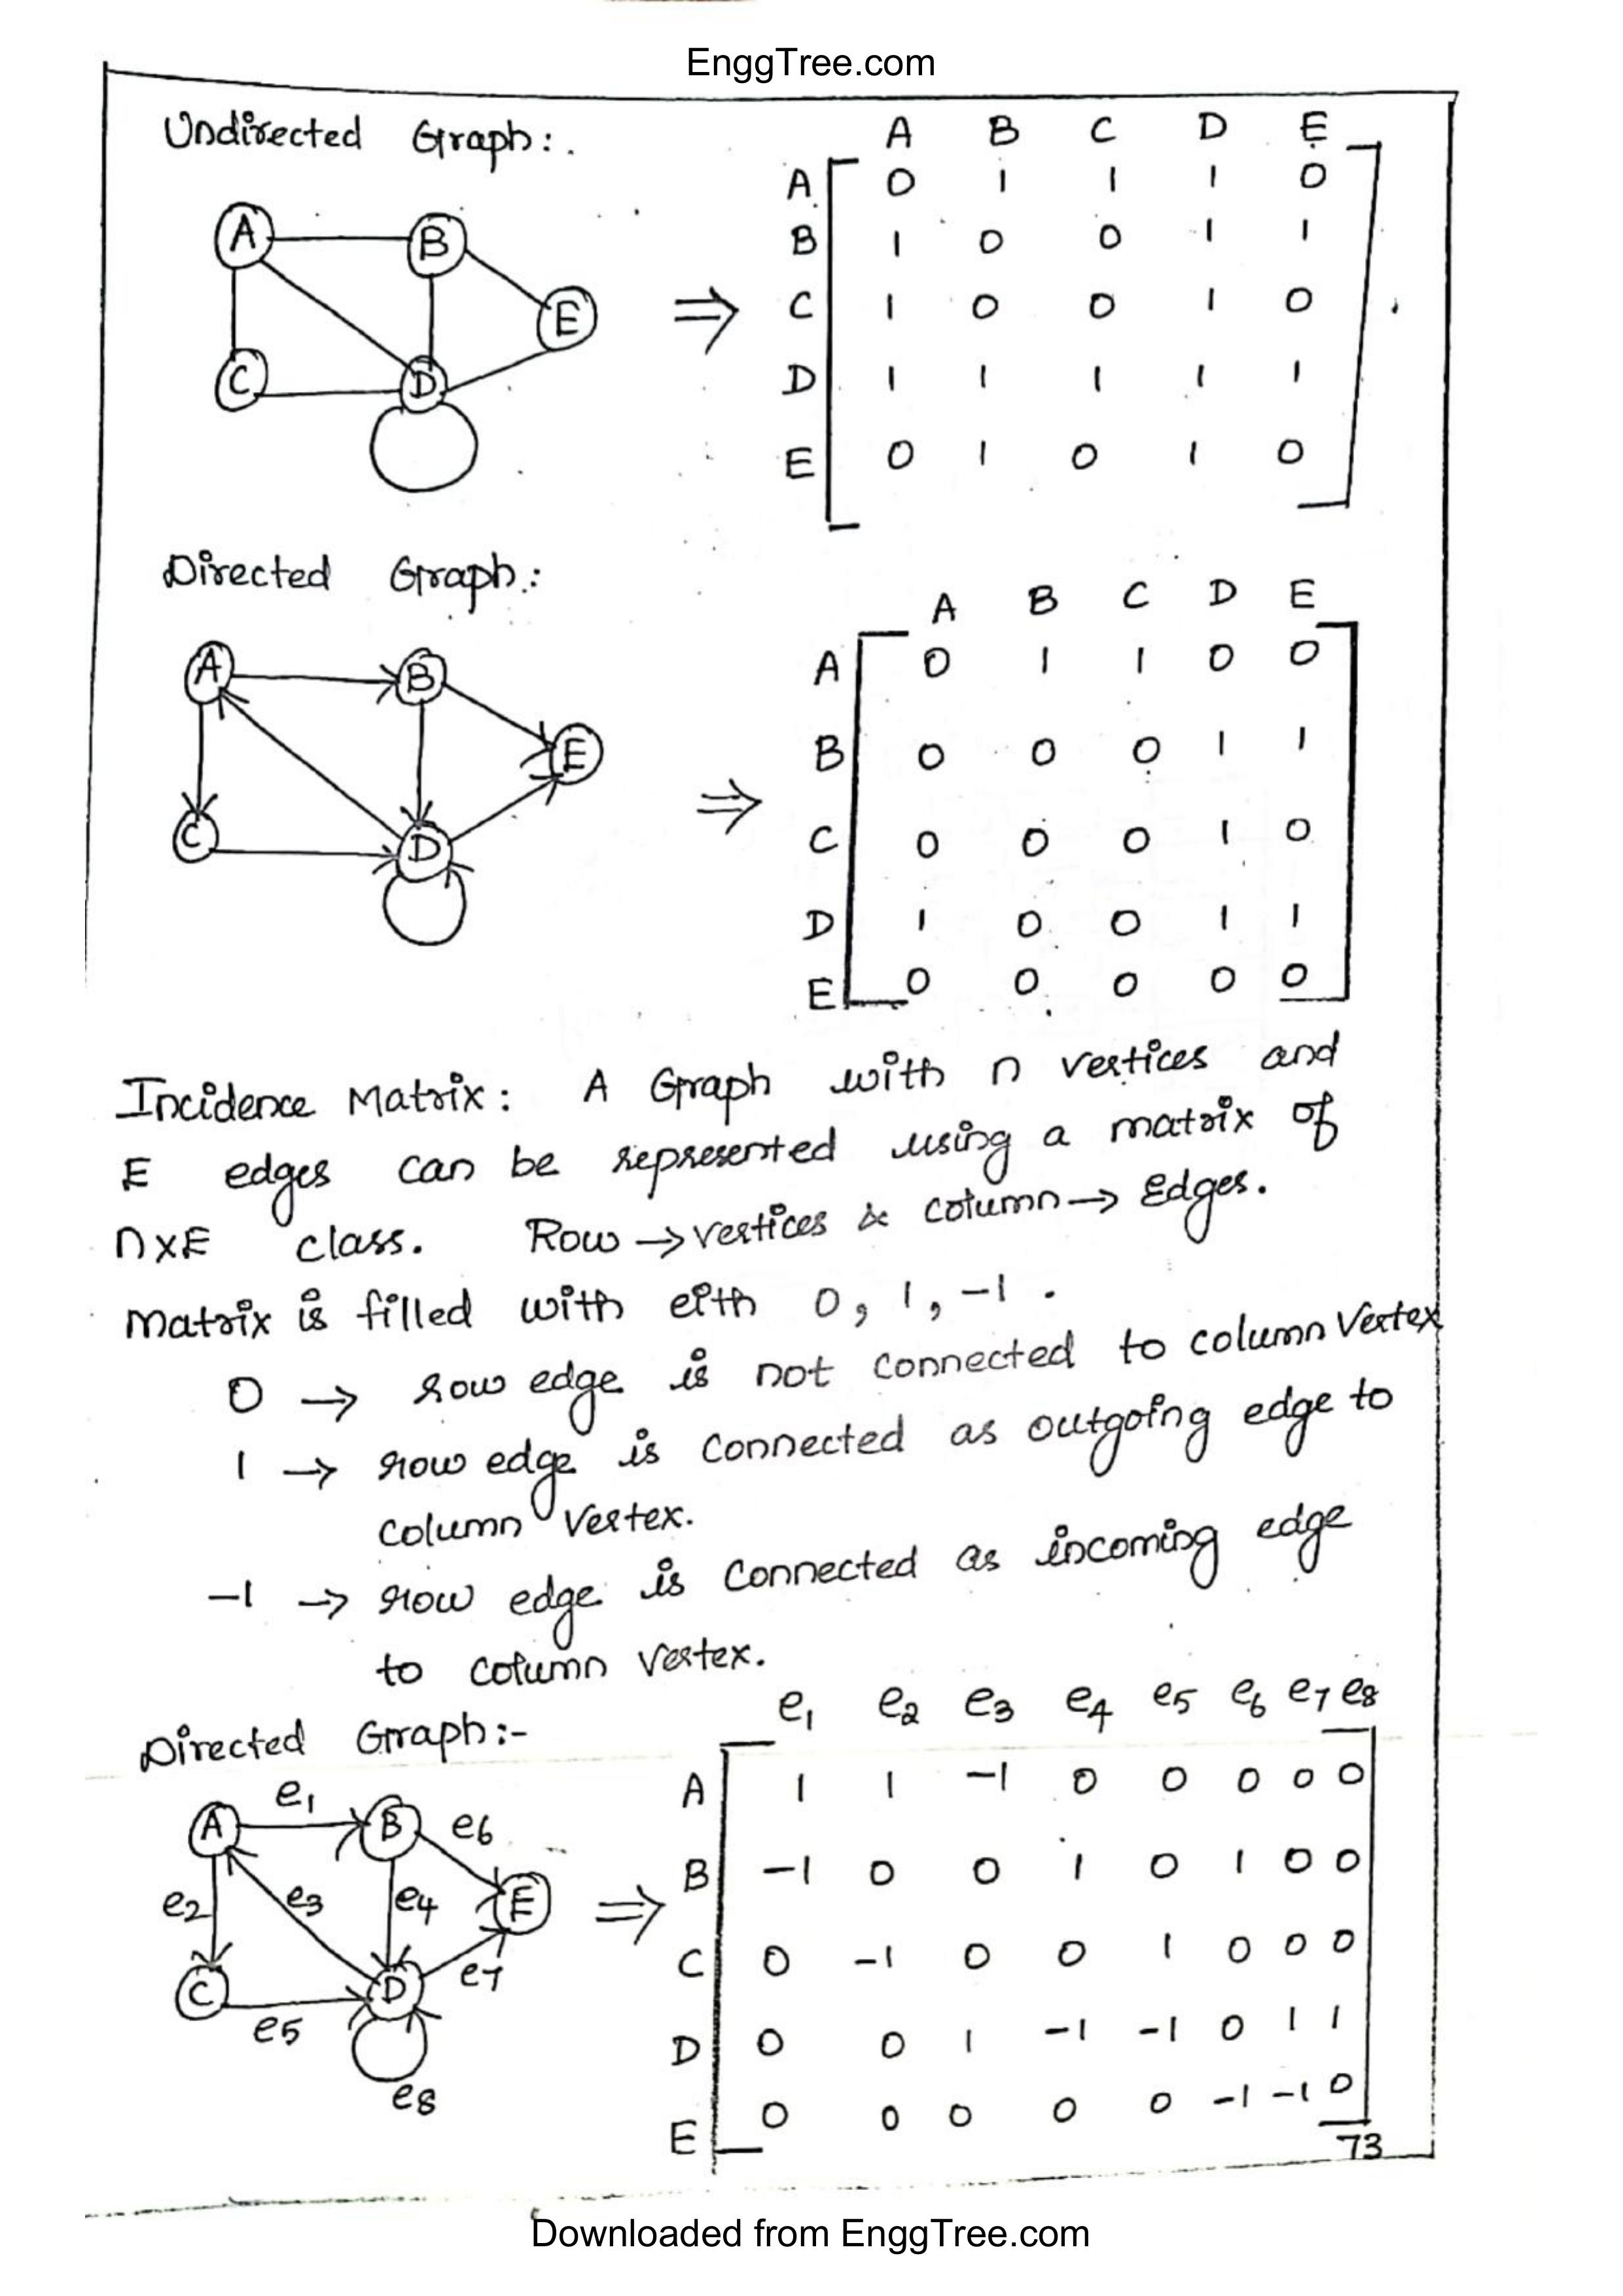 EnggTree.com
Undirected Graph:.
A B C D E
A 0 1 1 1 0
B 1 0 0 1 1
C 1 0 0 1 0
D 1 1 1 1 1
E 0 1 0 1 0
A B E C D
⇒
Directed Graph:
A B C D E
A 0 1 1 0 0
B 0 0 0 1 1
C 0 0 0 1 0
D 1 0 0 1 1
E 0 0 0 0 0
A B E C D
⇒
Incidence Matrix: A Graph with n vertices and
E edges can be represented using a matrix of
nxE class. Row → vertices & column → Edges.
Matrix is filled with eith 0, 1, -1.
0 → row edge is not connected to column Vertex
1 → row edge is connected as outgoing edge to
column Vertex.
-1 → row edge is connected as incoming edge
to column vertex.
Directed Graph:-
e1 e2 e3 e4 e5 e6 e7 e8
A 1 1 -1 0 0 0 0 0
B -1 0 0 1 0 1 0 0
C 0 -1 0 0 1 0 0 0
D 0 0 1 -1 -1 0 1 1
E 0 0 0 0 0 -1 -1 0
e1
A B e6
e2 e3 e4 E ⇒
C D e7
e5
e8
73
Downloaded from EnggTree.com